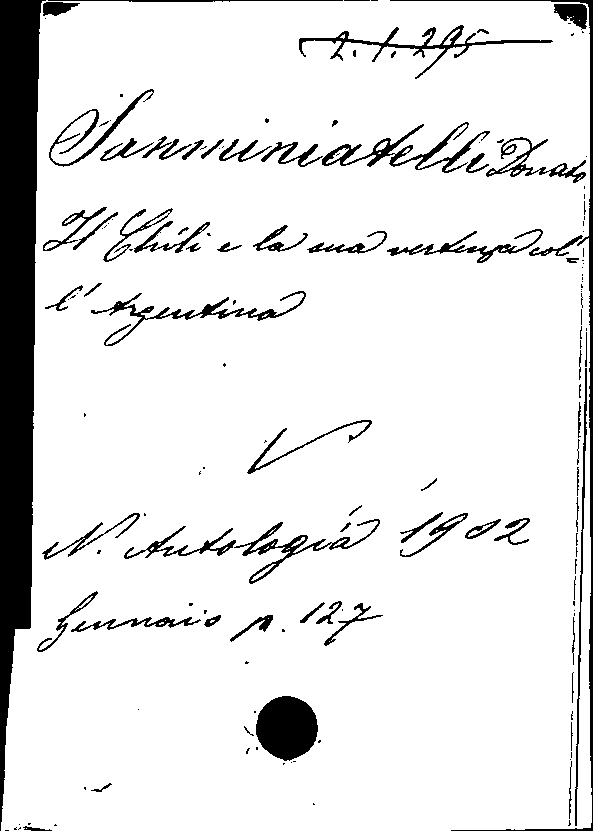 2.1.295
Sanminiatelli Donato
Il Chili e la sua vertenza col=
l'Argentina
V
N. Antologia 1902
Gennaio p. 127